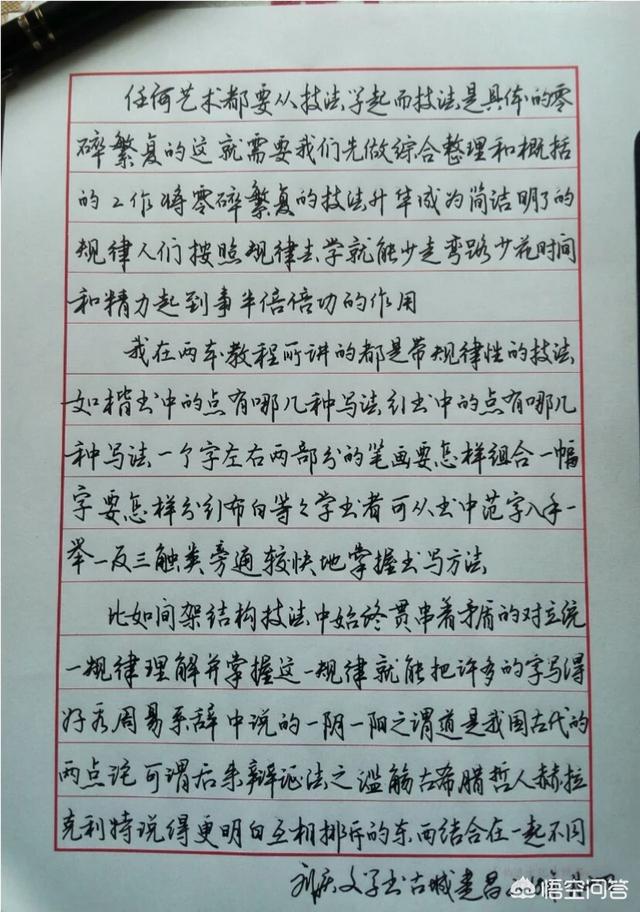 任何艺术都要从技法学起而技法是具体的零
碎繁复的这就需要我们先做综合整理和概括
的工作将零碎繁复的技法升华成为简洁明了的
规律人们按照规律去学就能少走弯路少花时间
和精力起到事半倍倍功的作用
我在两本教程所讲的都是带规律性的技法
如楷书中的点有哪几种写法行书中的点有哪几
种写法一个字左右两部分的笔画要怎样组合一幅
字要怎样分行布白等等学书者可从书中范字入手一
举一反三触类旁通较快地掌握书写方法
比如间架结构技法中始终贯串着矛盾的对立统
一规律理解并掌握这一规律就能把许多的字写得
好看周易系辞中说的一阴一阳之谓道是我国古代的
两点论可谓后来辩证法之滥觞古希腊哲人赫拉
克利特说得更明白互相排斥的东西结合在一起不同
刘庆文学书古城建昌
悟空问答